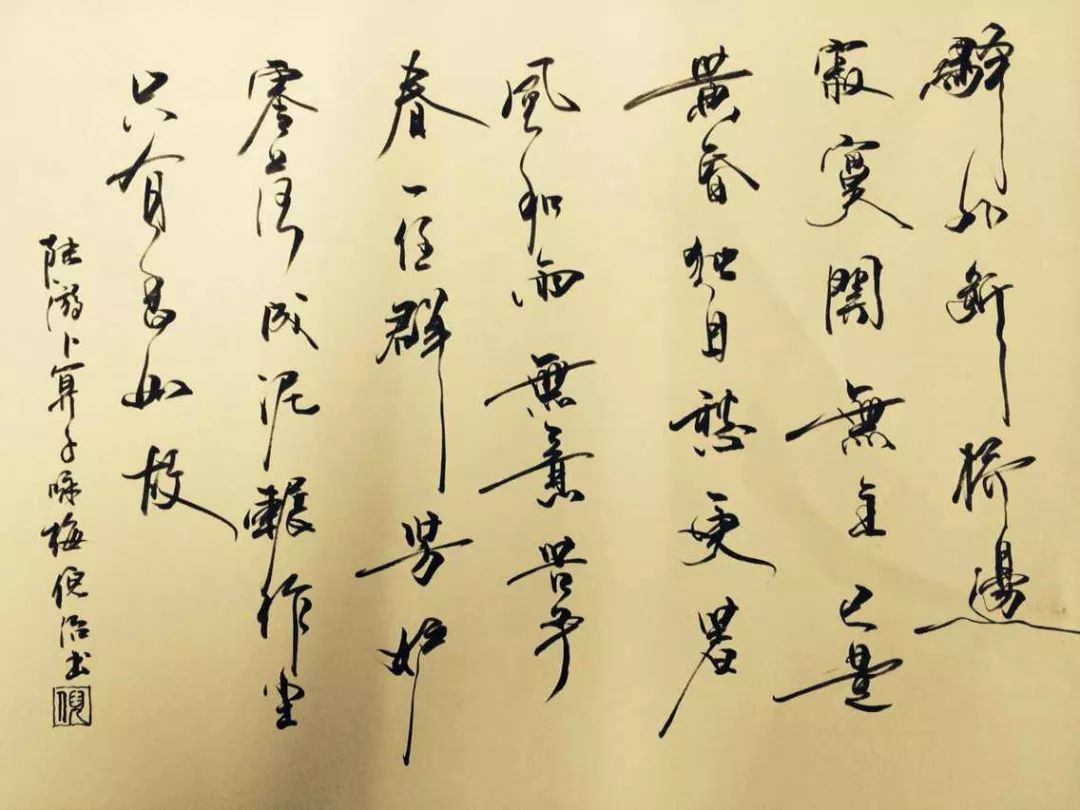 驛外斷橋邊
寂寞開無主已是
黃昏獨自愁更著
風和雨無意苦爭
春一任群芳妒
零落成泥輾作塵
只有香如故
陸游卜算子咏梅倪治书
倪